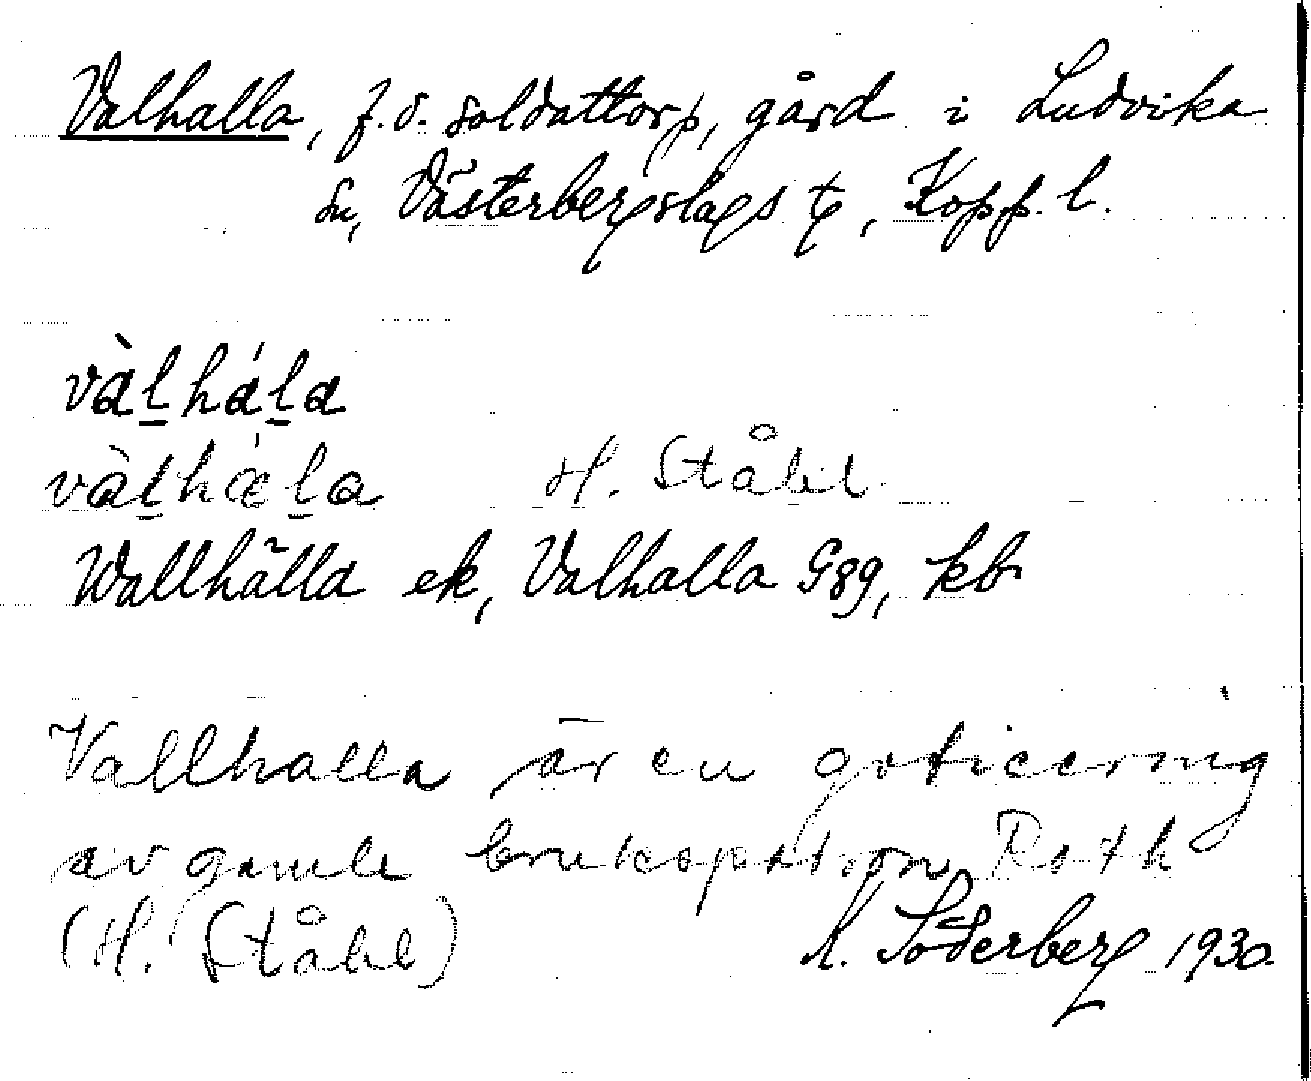 Valhalla, f.d. soldattorp, gård i Ludvika
sn, Västerbergslags tg, Kopp. l.
vàl̠hál̠a
vàl̠hál̠a H. Ståhl
Wallhälla ek, Valhalla Ggg, kb
Vallhalla är en goticering
av gamle brukspatron Roth
(H. Ståhl) A. Söderberg 1930